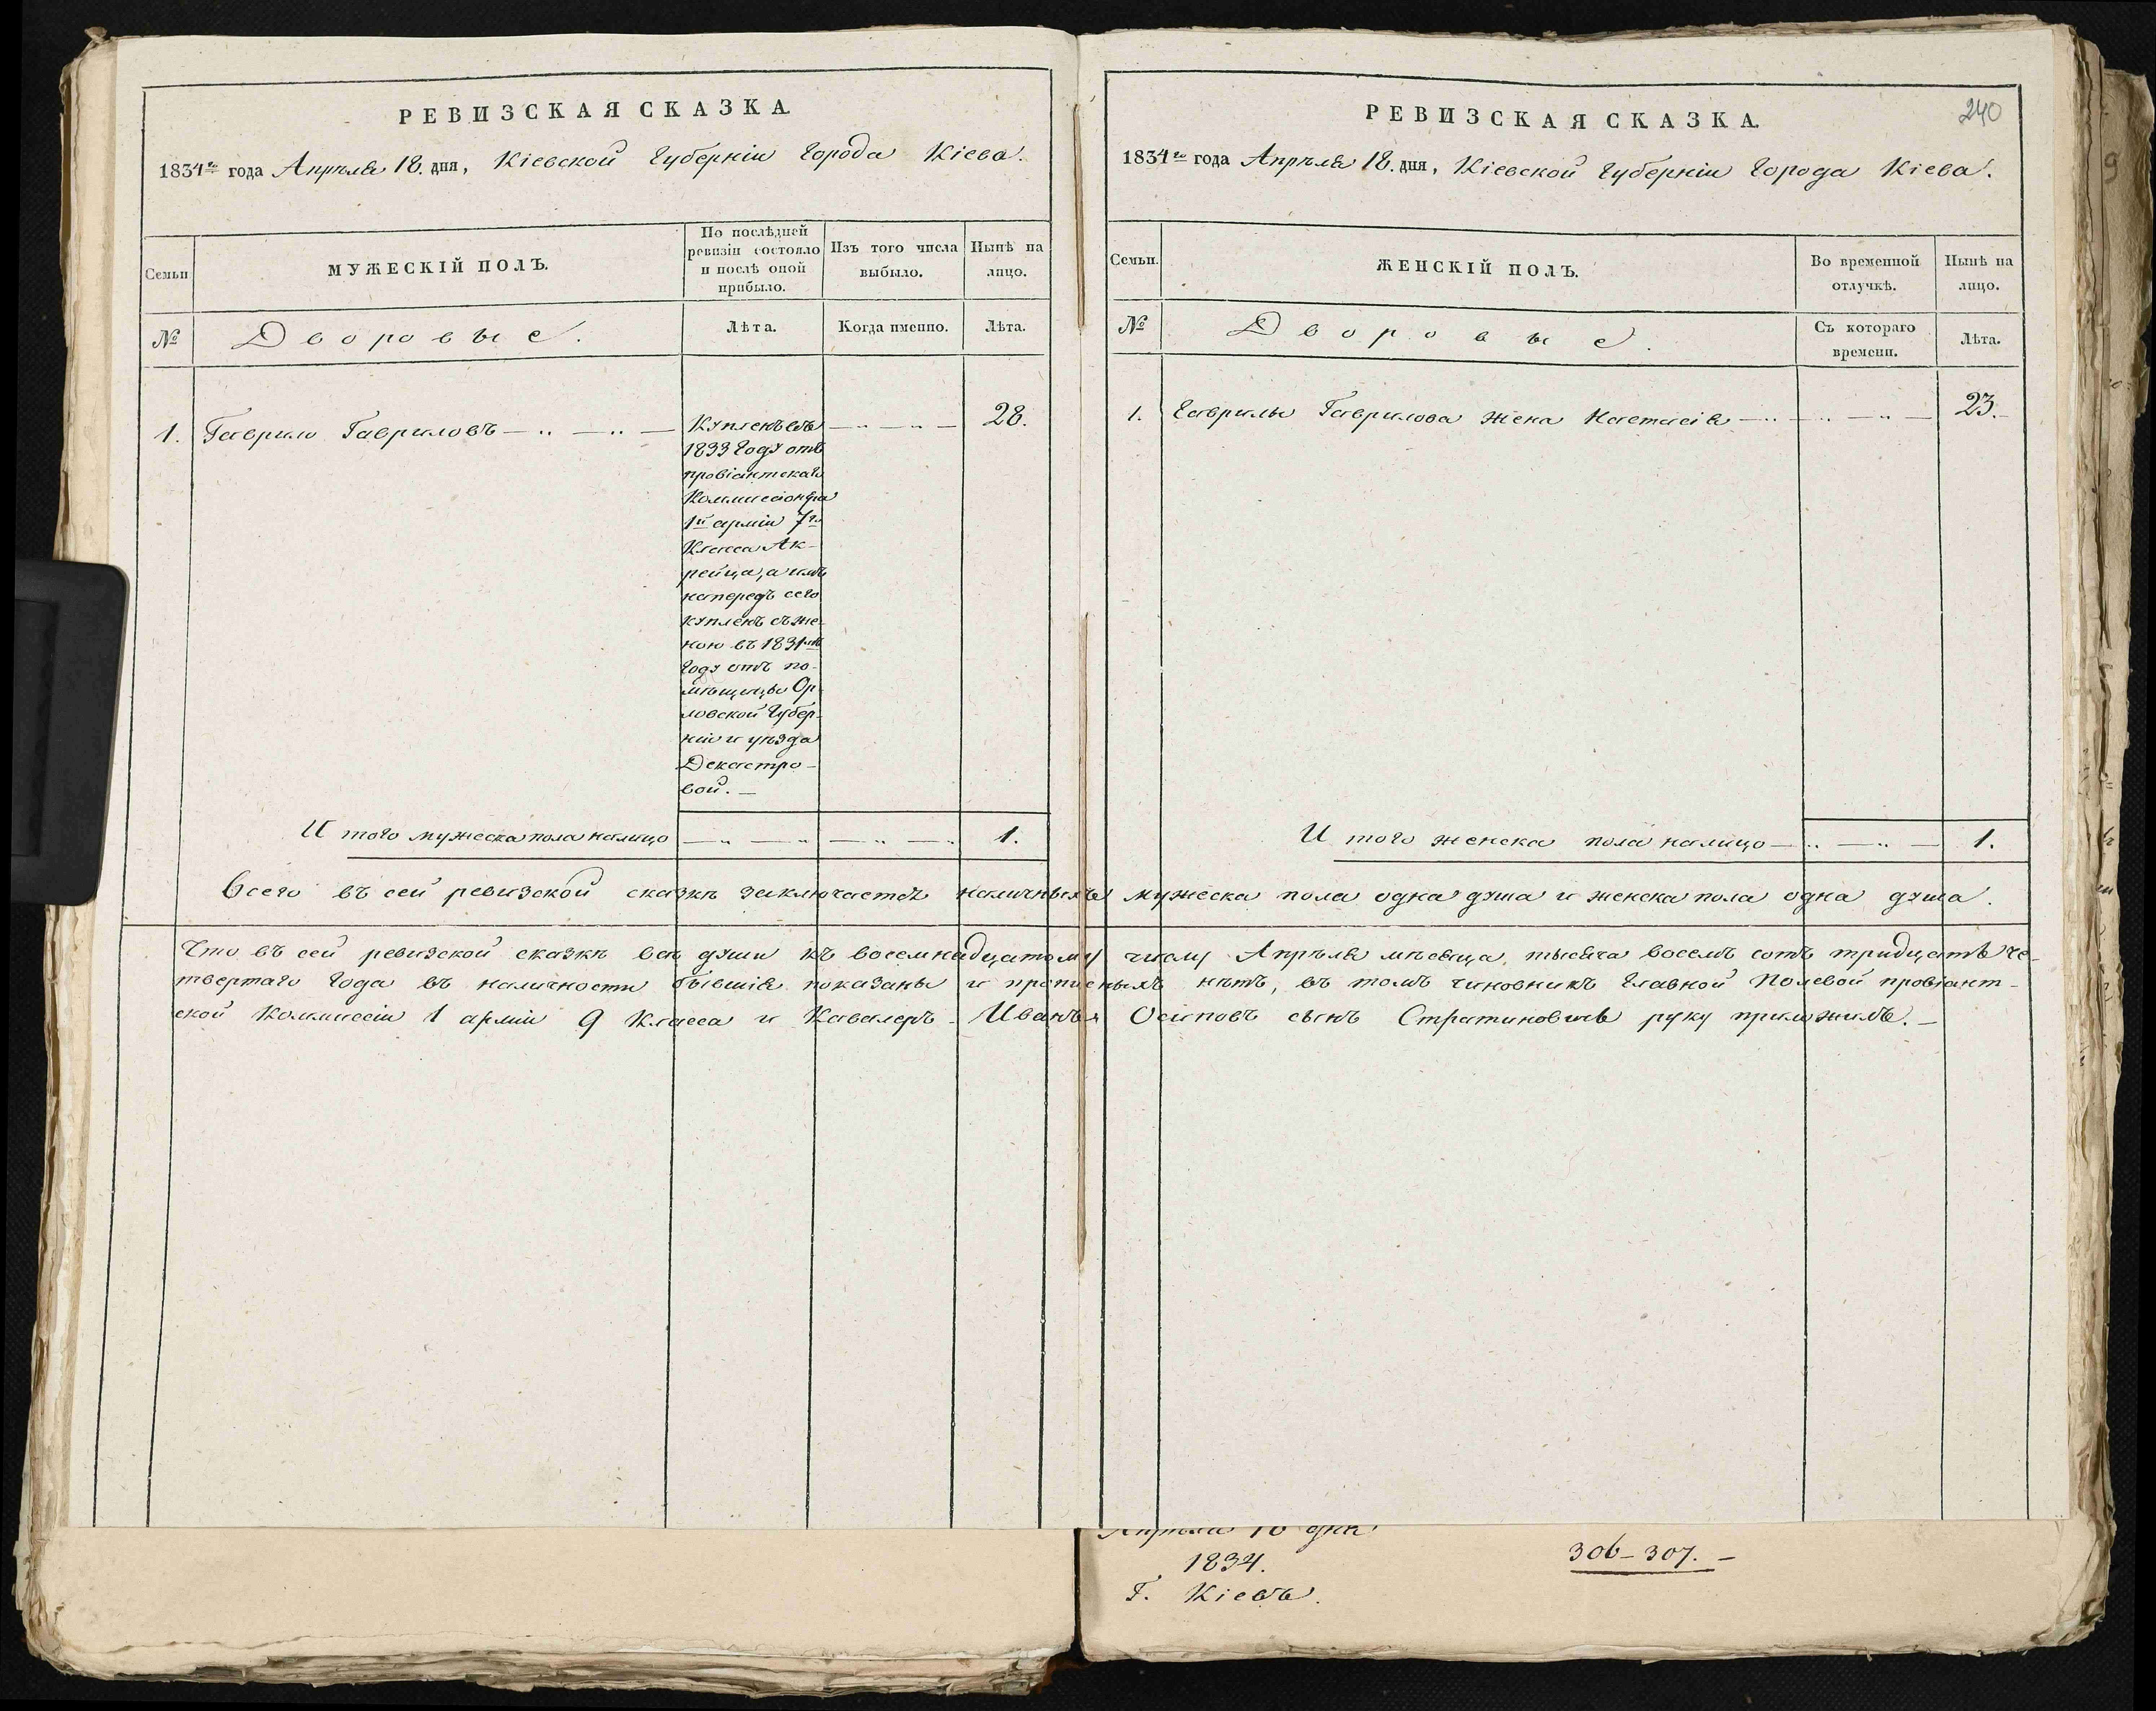 РЕВИЗСКАЯ СКАЗКА
1834го года Апрѣля 18. дня, Кіевской Губерніи Города Кіева.
Семьи
МУЖЕСКІЙ ПОЛЪ.
По послѣдней
ревизіи состояло
и послѣ оной
прибыло.
Изъ того числа
выбыло.
Нынѣ на
лицо.
№
Дворовые.
Лѣта.
Когда именно.
Лѣта.
1. Гаврило Гавриловъ — „ — „ —
Купленъ въ
1833 Году отъ
провіантскаго
Коммиссіонера
1й арміи 7го
Класса Ак-
рейца, а имъ
напередъ сего
купленъ съ же-
ною въ 1831мъ
Году отъ по-
мѣщицы Ор-
ловской Губер-
ніи и уѣзда
Декастро-
вой. —
— „ — „ —
28.
И того мужеска пола налицо — „ — „ — „ — „ 1.
РЕВИЗСКАЯ СКАЗКА.
240
1834го года Апрѣля 18. дня, Кіевской Губерніи Города Кіева.
Семьи.
ЖЕНСКІЙ ПОЛЪ.
Во временной
отлучкѣ.
Нынѣ на
лицо.
№
Дворовые.
Съ котораго
времени.
Лѣта.
1. Гаврилы Гаврилова жена Настасія — „ — „ — „ — 23.
И того женска пола налицо — „ — „ — 1.
Всего въ сей ревизской сказкѣ заключается наличныхъ мужеска пола одна душа и женска пола одна душа.
Что въ сей ревизской сказкѣ всѣ души къ восемнадцатому числу Апрѣля мѣсяца, тысяча восемь сотъ тридцать че-
твертаго Года въ наличности бывшія показаны и прописныхъ нѣтъ, въ томъ чиновникъ Главной Полевой провіант-
ской Коммиссіи 1 арміи 9 Класса и Кавалеръ Иванъ Осиповъ сынъ Стратиновичь руку приложилъ. —
1834.
Г. Кіевъ.
306-307. —